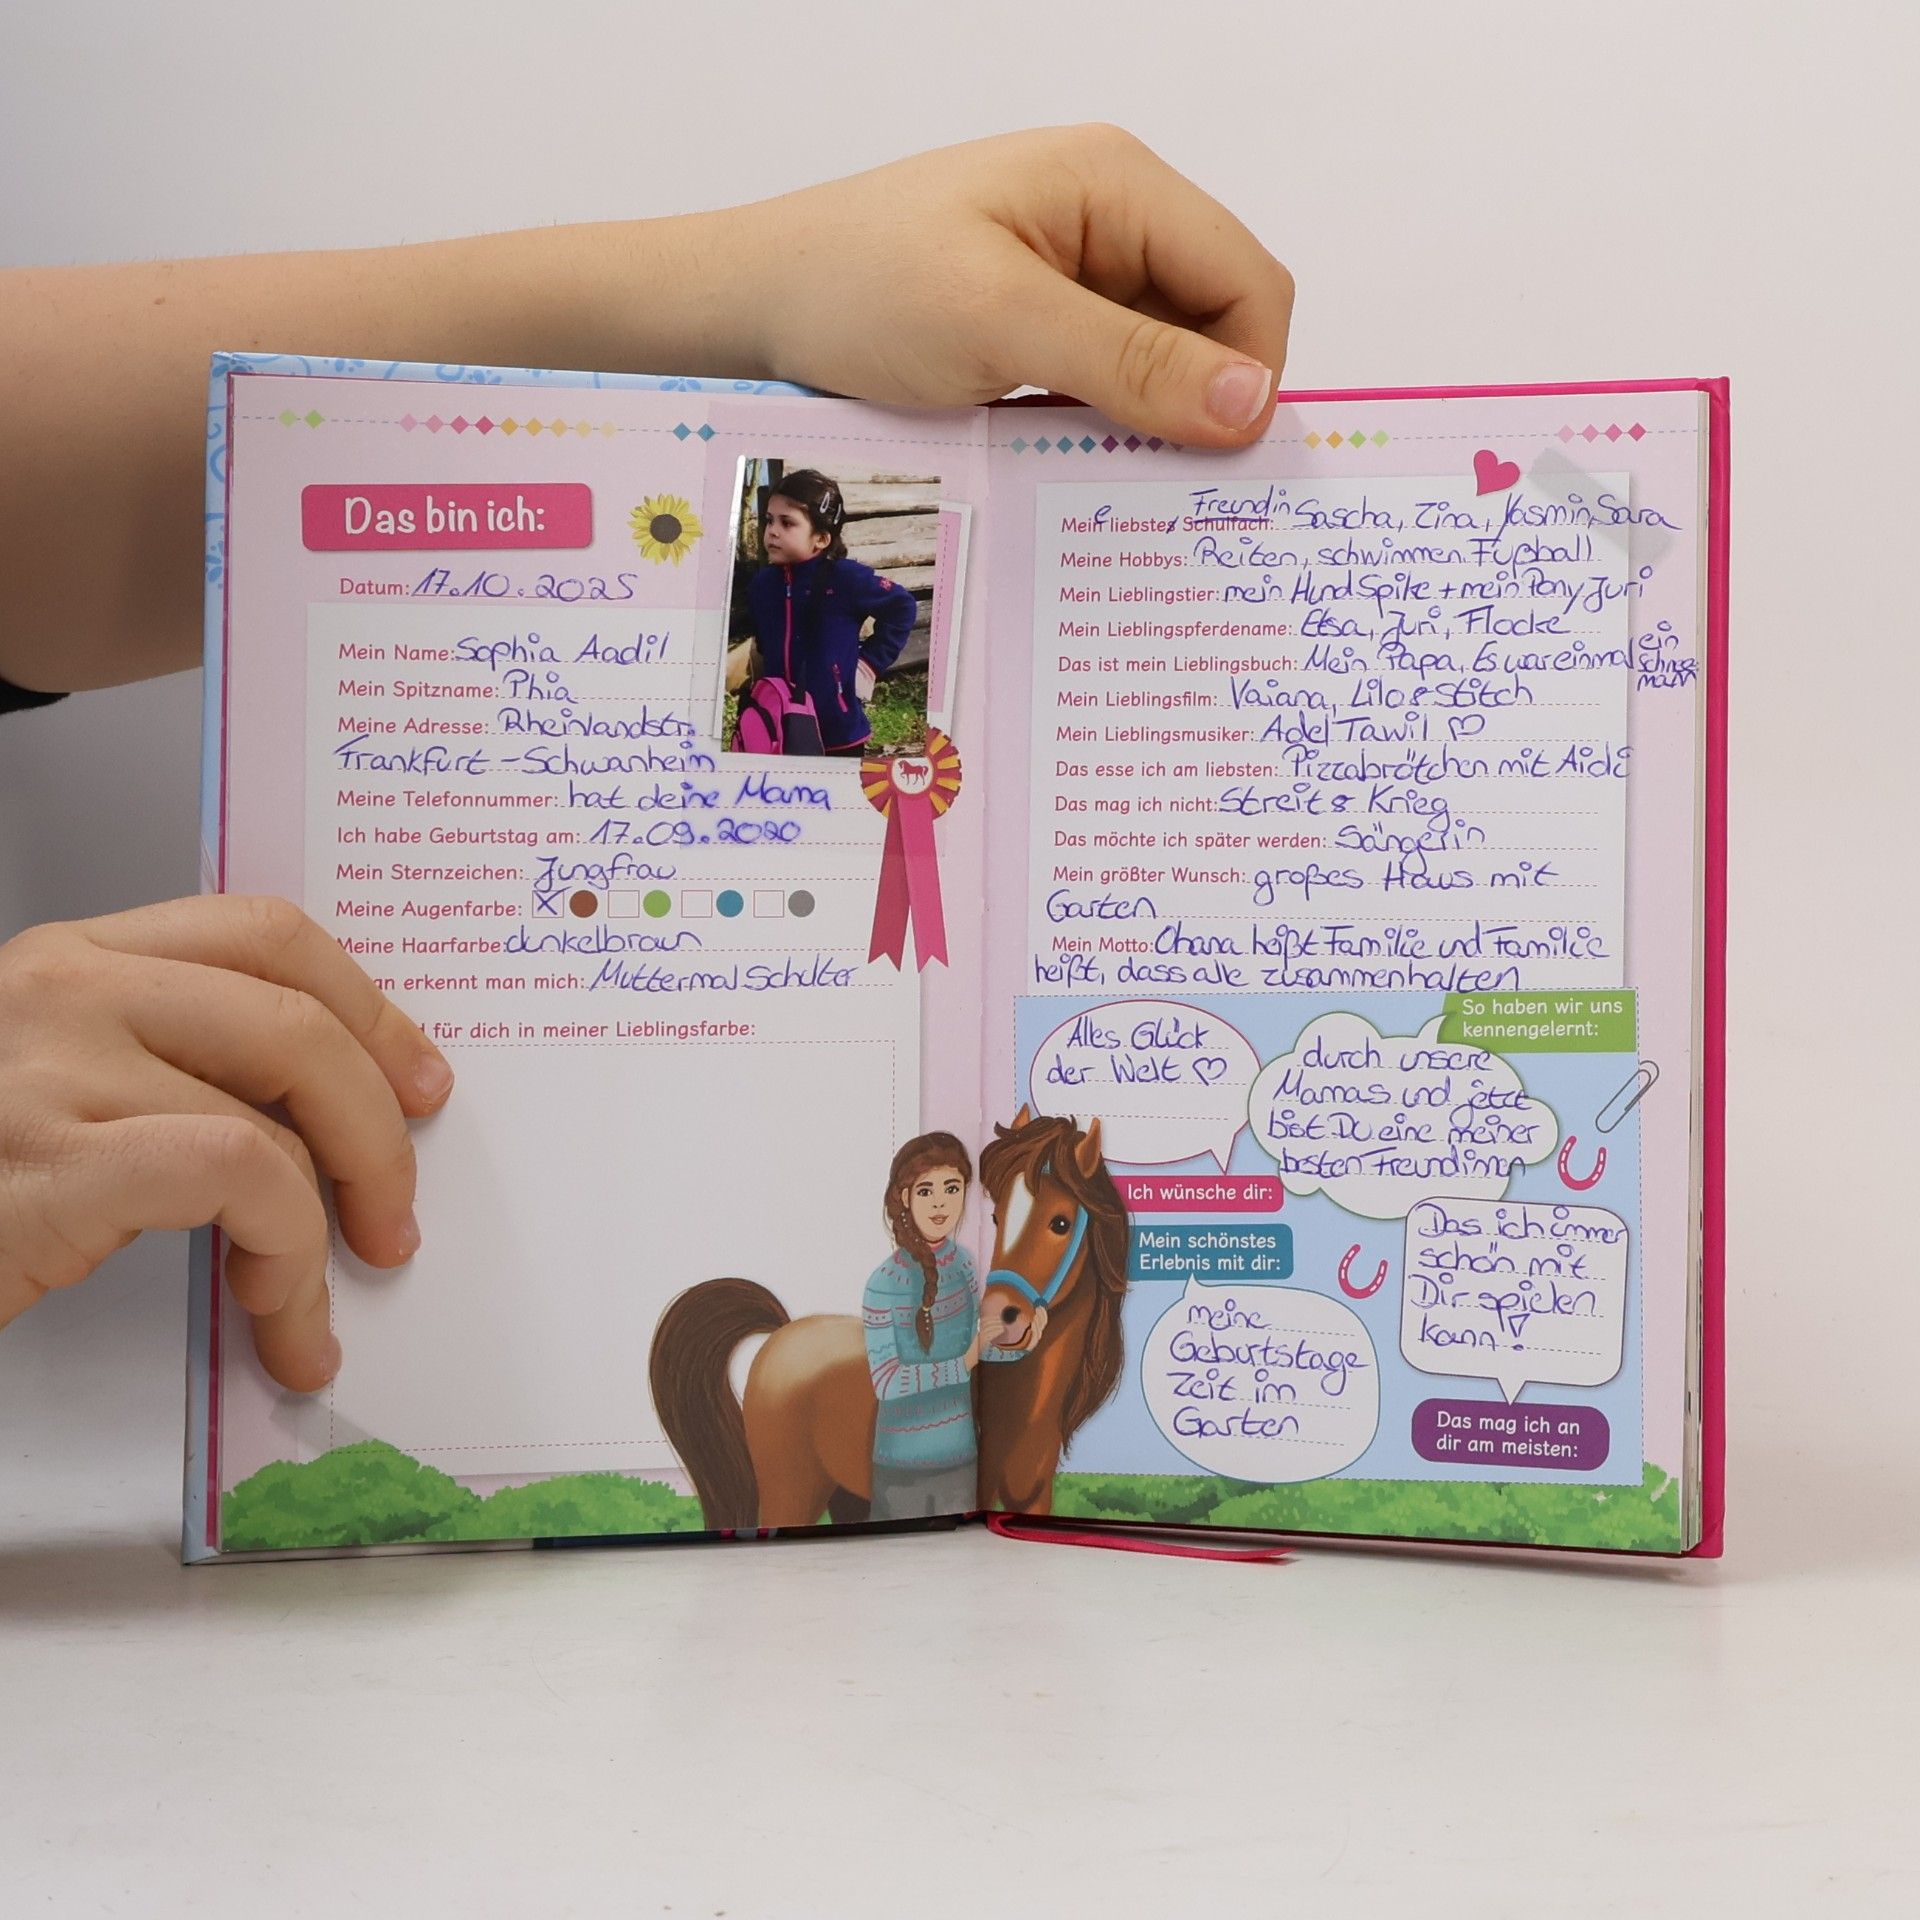 Das bin ich:
Datum: 17.10.2025
Mein Name: Sophia Aadil
Mein Spitzname: Phia
Meine Adresse: Rheinlandstr.
Frankfurt - Schwanheim
Meine Telefonnummer: hat deine Mama
Ich habe Geburtstag am: 17.09.2020
Mein Sternzeichen: Jungfrau
Meine Augenfarbe: X
Meine Haarfarbe: dunkelbraun
an erkennt man mich: Muttermal Schulter
für dich in meiner Lieblingsfarbe:
Freundin
Meine liebste Schulfach: Sascha, Zina, Yasmin, Sara
Meine Hobbys: Reiten, schwimmen, Fußball
Mein Lieblingstier: mein Hund Spike + mein Pony Juri
Mein Lieblingspferdename: Elsa, Juri, Flocke
Das ist mein Lieblingsbuch: Mein Papa, Es war einmal ein
mann
Mein Lieblingsfilm: Vaiana, Lilo & Stitch
Mein Lieblingsmusiker: Adel Tawil ♡
Das esse ich am liebsten: Pizzabrötchen mit
Das mag ich nicht: Streit & Krieg
Das möchte ich später werden: Sängerin
Mein größter Wunsch: großes Haus mit
Garten
Mein Motto: Ohana heißt Familie und Familie
heißt, dass alle zusammenhalten
Alles Glück
der Welt ♡
Ich wünsche dir:
So haben wir uns
kennengelernt:
durch unsere
Mamas und jetzt
bist Du eine meiner
besten Freundinnen
Mein schönstes
Erlebnis mit dir:
meine
Geburtstage
Zeit im
Garten
Das ich immer
schön mit
Dir spielen
kann!
Das mag ich an
dir am meisten: